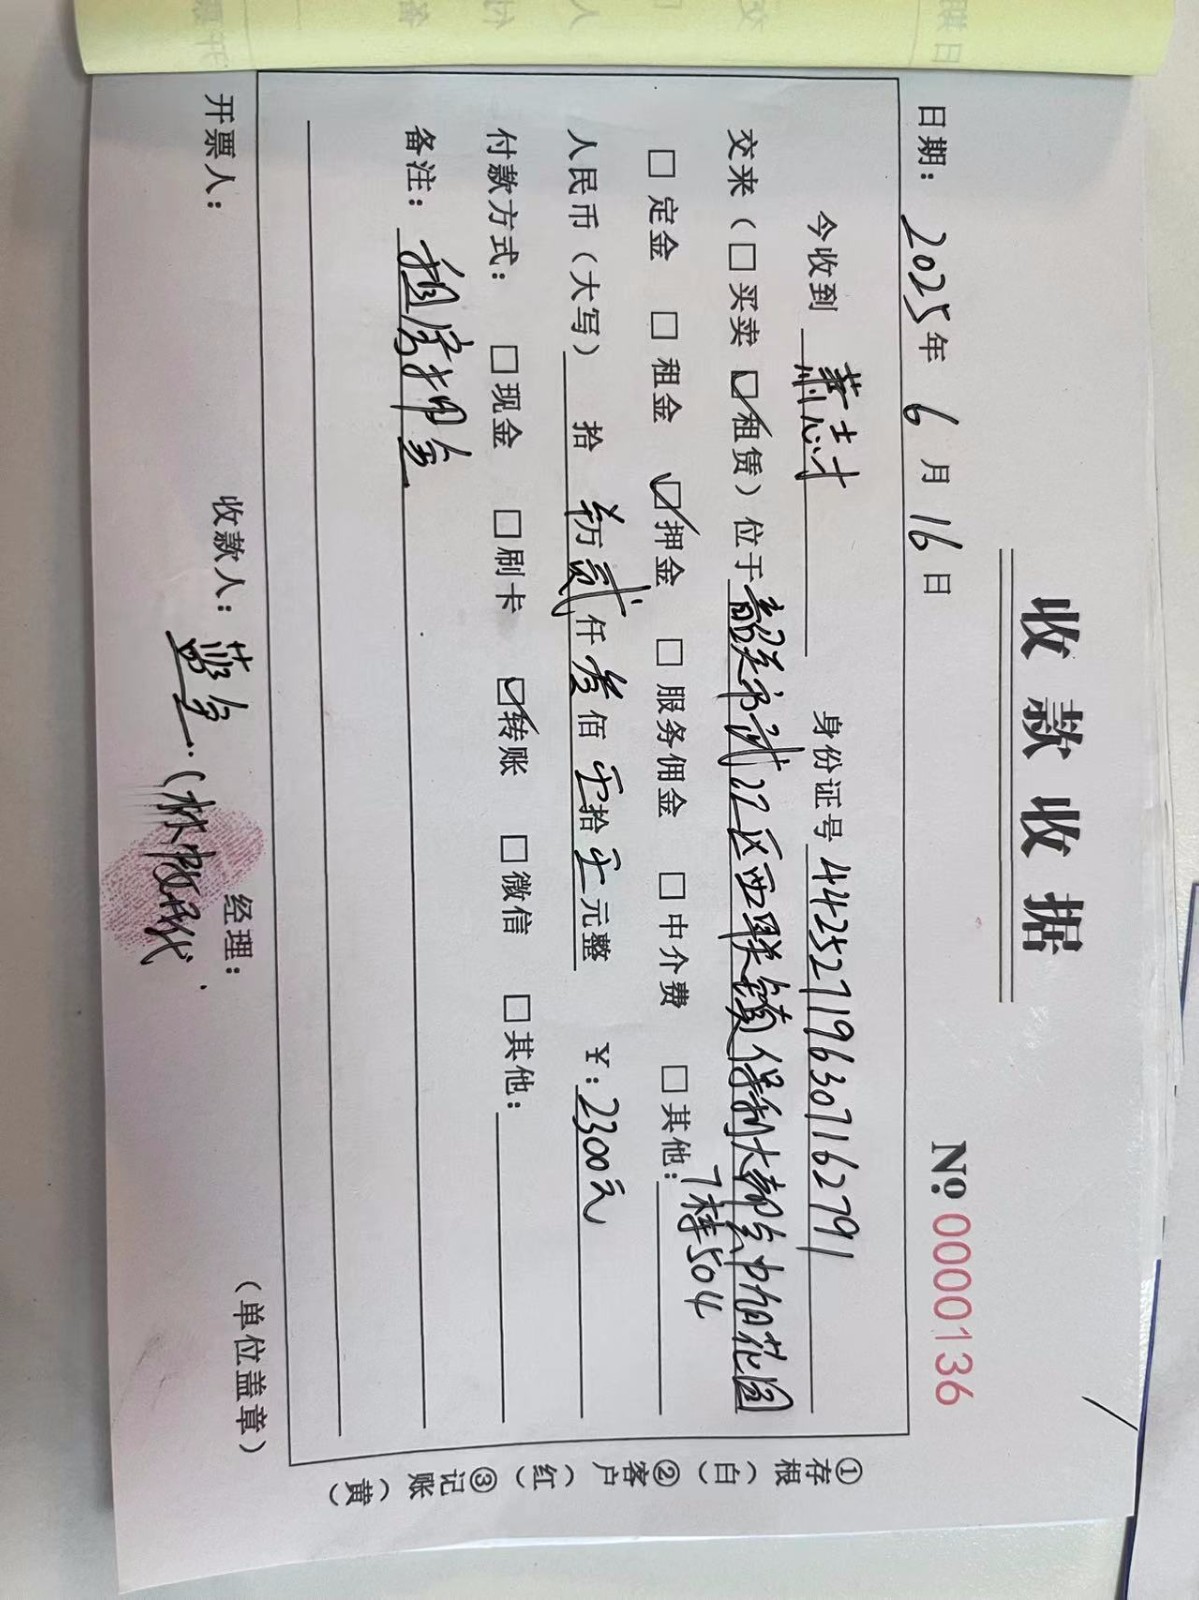 收款收据
日期：2025年 6月16日 №0000136
今收到 萧志才 身份证号 442527196307116279
交来（□买卖 ☑租赁）位于韶关市浈江区西联镇保利大都会中旭花园
7栋504
□定金 □租金 ☑押金 □服务佣金 □中介费 □其他：
人民币（大写） 拾 万贰仟叁佰零拾零元整 ￥：2300元
付款方式：□现金 □刷卡 ☑转账 □微信 □其他：
备注：租房押金
开票人： 收款人： 经理： （单位盖章）
①存根（白）②客户（红）③记账（黄）